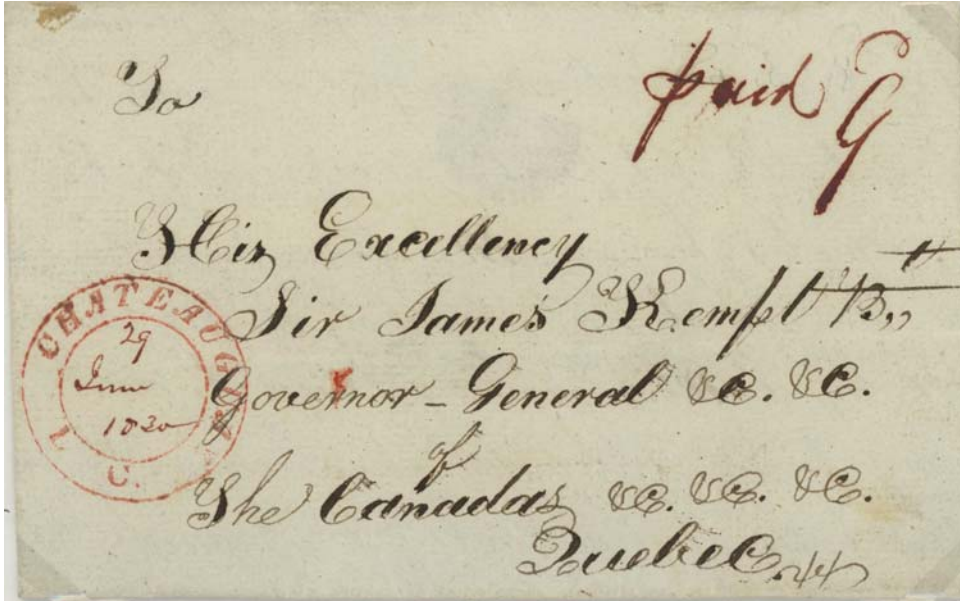 To
paid 9
His Excellency
Sir James Kempt B,, t
Governor - General &c. &c.
of
The Canadas &c. &c. &c.
Quebec
CHATEAUGUAY
L. C.
29
June
1830